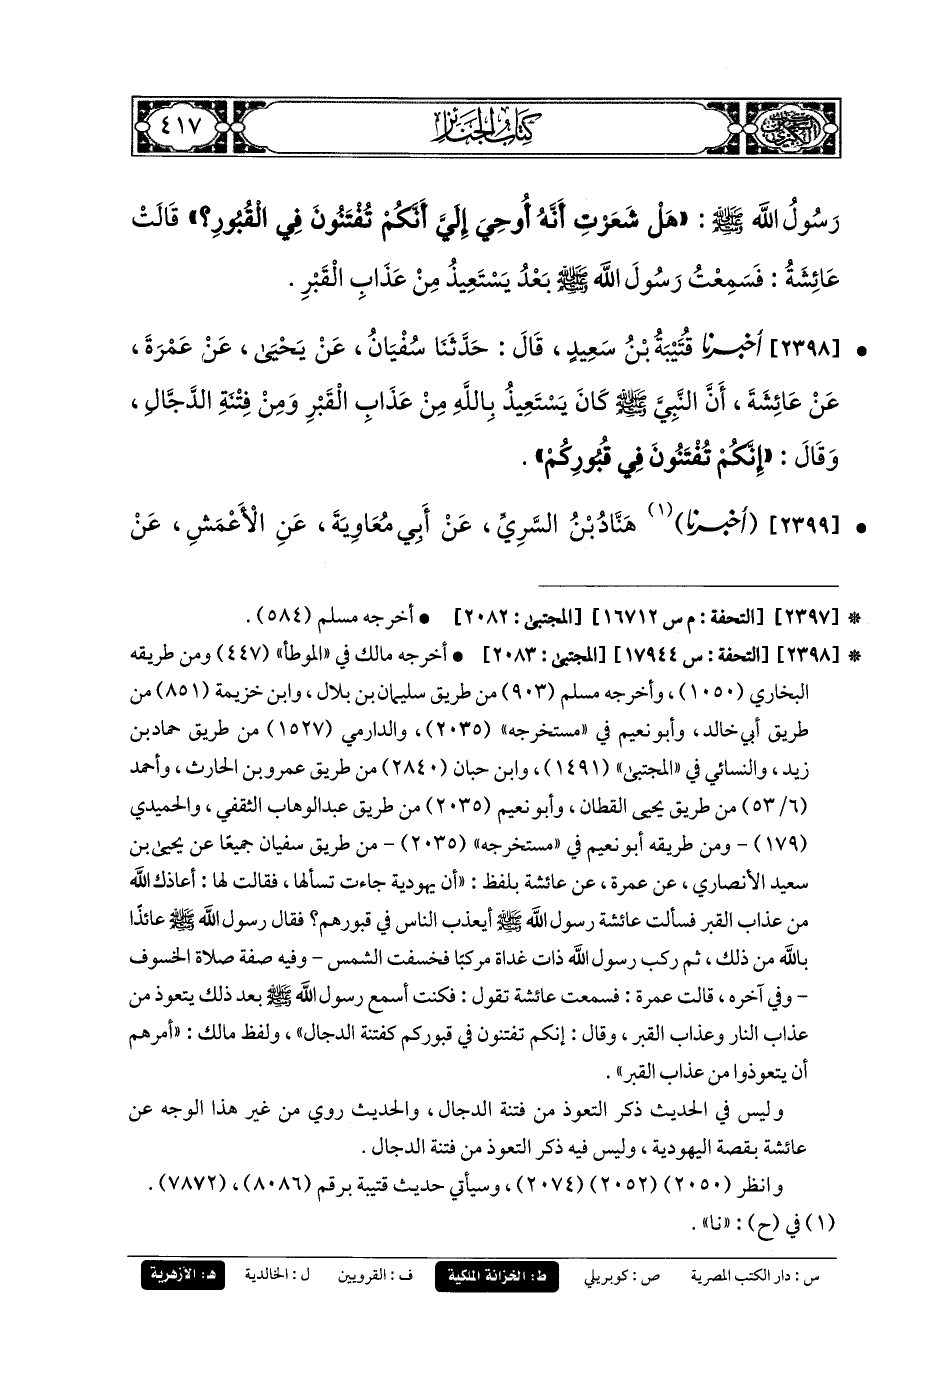 كتاب الجنائز
٤١٧
رَسُولُ اللَّه ﷺ : «هَلْ شَعَرْتِ أَنَّهُ أُوحِيَ إِلَيَّ أَنَّكُمْ تُفْتَنُونَ فِي الْقُبُورِ؟» قَالَتْ
عَائِشَةُ : فَسَمِعْتُ رَسُولَ اللَّه ﷺ بَعْدُ يَسْتَعِيذُ مِنْ عَذَابِ الْقَبْرِ .
• [٢٣٩٨] أخبرنا قُتَيْبَةُ بْنُ سَعِيدٍ ، قَالَ : حَدَّثَنَا سُفْيَانُ ، عَنْ يَحْيَى ، عَنْ عَمْرَةَ ،
عَنْ عَائِشَةَ ، أَنَّ النَّبِيَّ ﷺ كَانَ يَسْتَعِيذُ بِاللَّهِ مِنْ عَذَابِ الْقَبْرِ وَمِنْ فِتْنَةِ الدَّجَّالِ ،
وَقَالَ : «إِنَّكُمْ تُفْتَنُونَ فِي قُبُورِكُمْ» .
• [٢٣٩٩] (أخبرنا)(١) هَنَّادُ بْنُ السَّرِيِّ ، عَنْ أَبِي مُعَاوِيَةَ ، عَنِ الْأَعْمَشِ ، عَنْ
* [٢٣٩٧] [التحفة : م س ١٦٧١٢] [المجتبى : ٢٠٨٢] • أخرجه مسلم (٥٨٤) .
* [٢٣٩٨] [التحفة : س ١٧٩٤٤] [المجتبى : ٢٠٨٣] • أخرجه مالك في «الموطأ» (٤٤٧) ومن طريقه
البخاري (١٠٥٠) ، وأخرجه مسلم (٩٠٣) من طريق سليمان بن بلال ، وابن خزيمة (٨٥١) من
طريق أبي خالد ، وأبو نعيم في «مستخرجه» (٢٠٣٥) ، والدارمي (١٥٢٧) من طريق حماد بن
زيد ، والنسائي في «المجتبى» (١٤٩١) ، وابن حبان (٢٨٤٠) من طريق عمرو بن الحارث ، وأحمد
(٦/ ٥٣) من طريق يحيى القطان ، وأبو نعيم (٢٠٣٥) من طريق عبدالوهاب الثقفي ، والحميدي
(١٧٩) - ومن طريقه أبو نعيم في «مستخرجه» (٢٠٣٥) - من طريق سفيان جميعًا عن يحيى بن
سعيد الأنصاري ، عن عمرة ، عن عائشة بلفظ : «أن يهودية جاءت تسألها ، فقالت لها : أعاذك الله
من عذاب القبر فسألت عائشة رسول الله ﷺ أيعذب الناس في قبورهم؟ فقال رسول الله ﷺ عائذًا
بالله من ذلك ، ثم ركب رسول الله ذات غداة مركبًا فخسفت الشمس - وفيه صفة صلاة الخسوف
- وفي آخره ، قالت عمرة : فسمعت عائشة تقول : فكنت أسمع رسول الله ﷺ بعد ذلك يتعوذ من
عذاب النار وعذاب القبر ، وقال : إنكم تفتنون في قبوركم كفتنة الدجال» ، ولفظ مالك : «أمرهم
أن يتعوذوا من عذاب القبر» .
وليس في الحديث ذكر التعوذ من فتنة الدجال ، والحديث روي من غير هذا الوجه عن
عائشة بقصة اليهودية ، وليس فيه ذكر التعوذ من فتنة الدجال .
وانظر (٢٠٥٠) (٢٠٥٢) (٢٠٧٤) ، وسيأتي حديث قتيبة برقم (٨٠٨٦) ، (٧٨٧٢) .
(١) في (ح) : «نا» .
س : دار الكتب المصرية ص : كوبريلي ط : الخزانة الملكية ف : القرويين ل : الخالدية هـ : الأزهرية